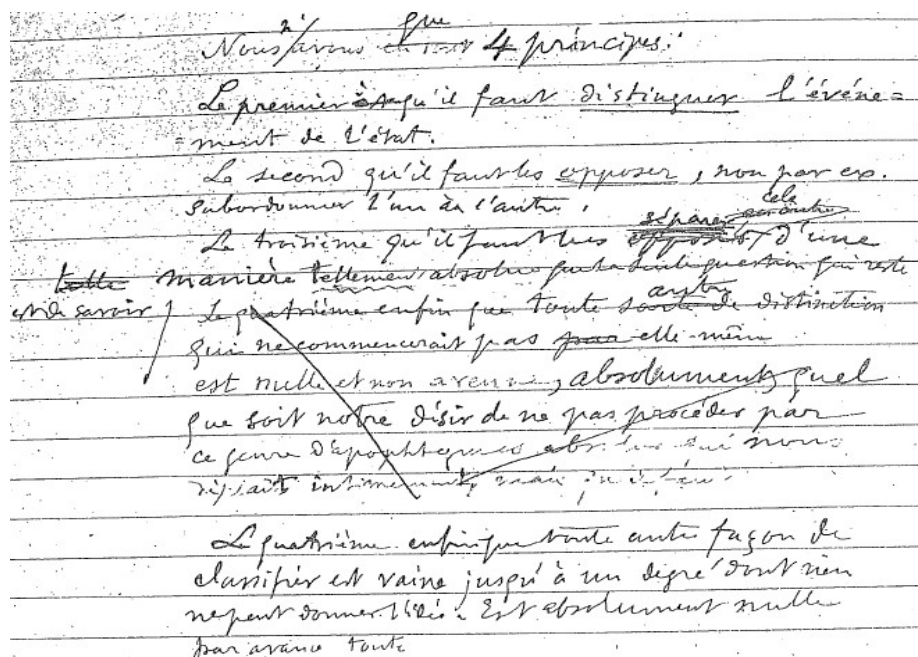 Nous n'avons que 4 principes:
Le premier qu'il faut distinguer l'événe=
=ment de l'état.
Le second qu'il faut les opposer, non par ex.
subordonner l'un à l'autre.
séparer cela
Le troisième qu'il faut les opposer d'une
telle manière tellement absolue que la seule question qui reste
est de savoir
Le quatrième enfin que toute sorte autre de distinction
qui ne commencerait pas par elle-même
est nulle et non avenue, absolument, quel
que soit notre désir de ne pas procéder par
ce genre d'apophtegmes absolus qui nous
intimement, mais
Le quatrième enfin que toute autre façon de
classifier est vaine jusqu'à un degré dont rien
ne peut donner l'idée. Est absolument nulle
par avance toute